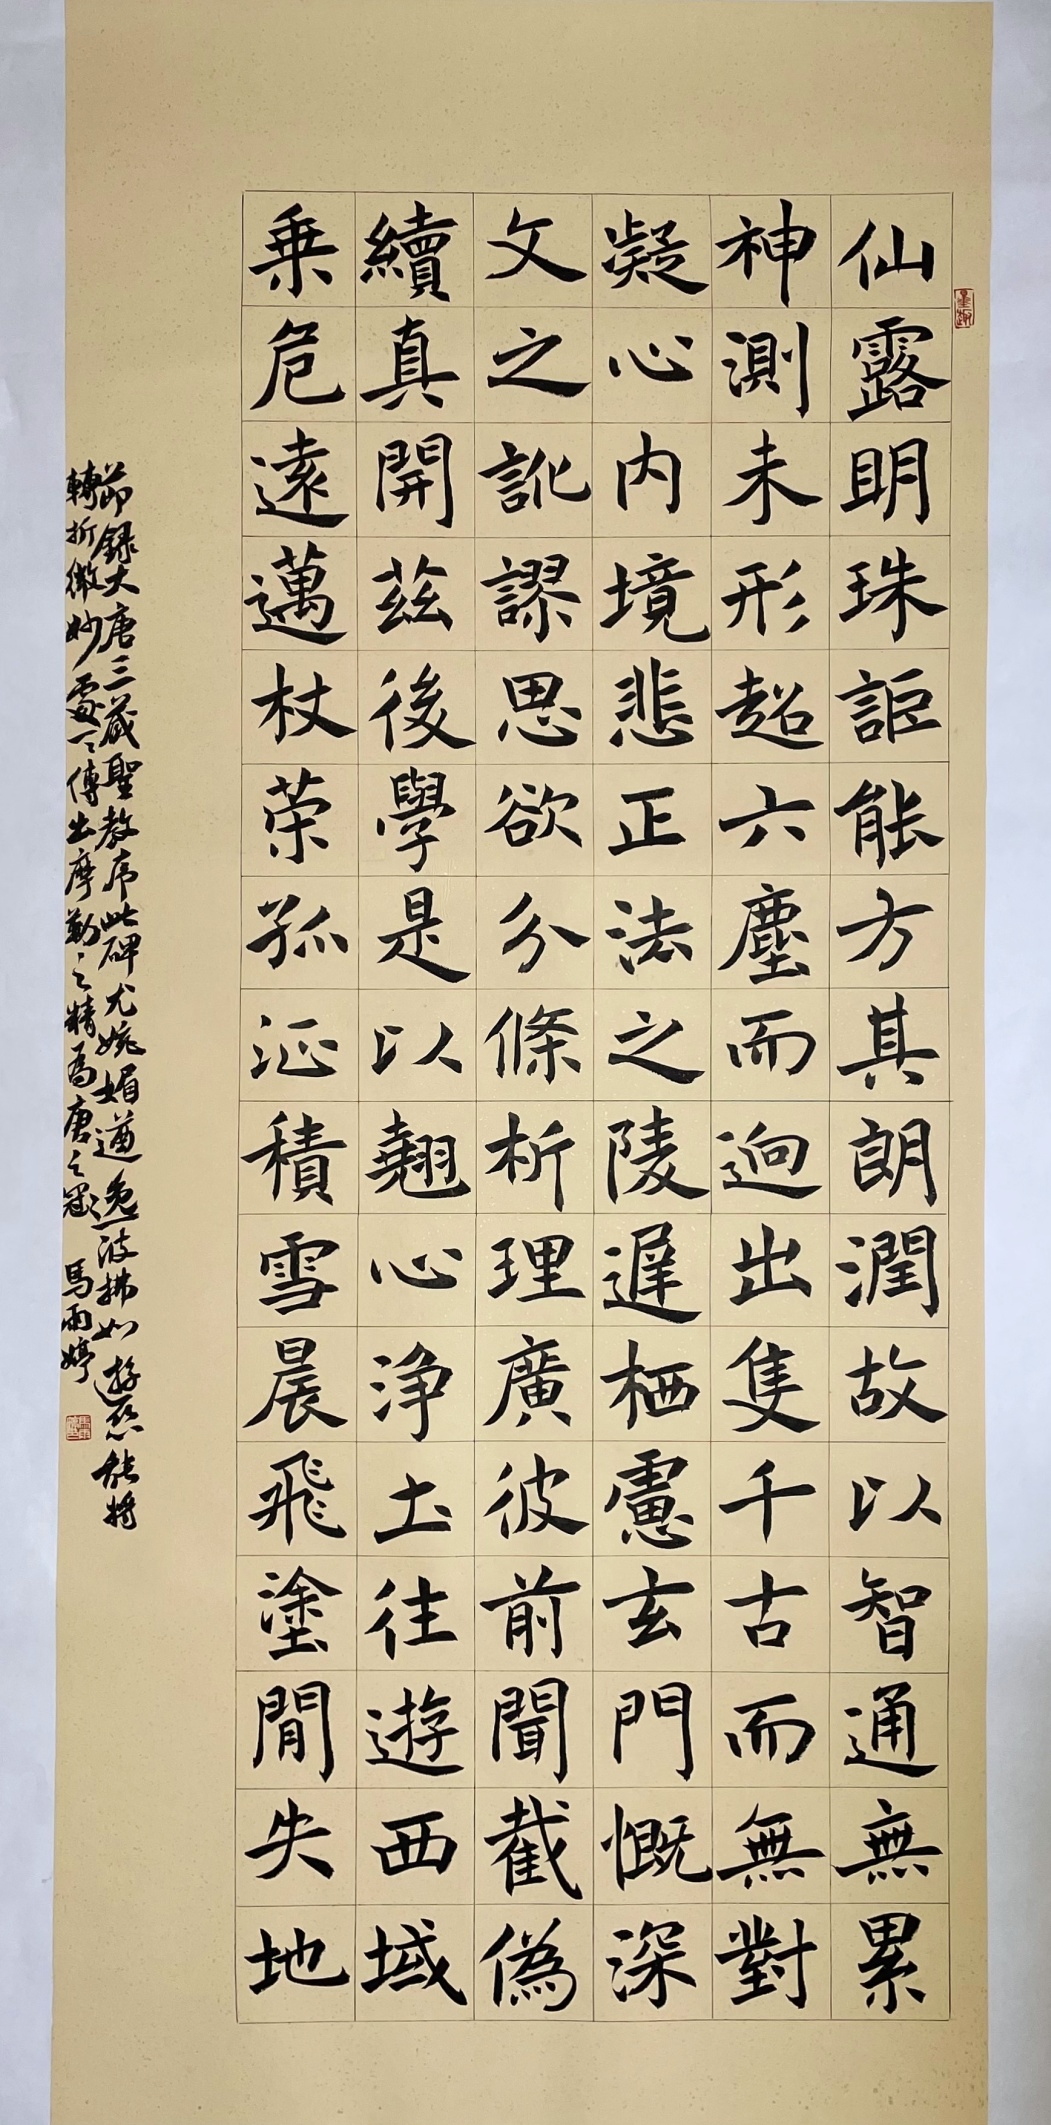 仙露明珠詎能方其朗潤故以智通無累
神測未形超六塵而迥出隻千古而無對
凝心內境悲正法之陵遲栖慮玄門慨深
文之訛謬思欲分條析理廣彼前聞截偽
續真開茲後學是以翹心淨土往遊西域
乗危遠邁杖榮孤征積雪晨飛塗閒失地
節録大唐三藏聖教序此碑尤婉媚遒逸波拂如遊絲能將
轉折微妙處一一傳出摩勒之精為唐之冠 馬雨婷